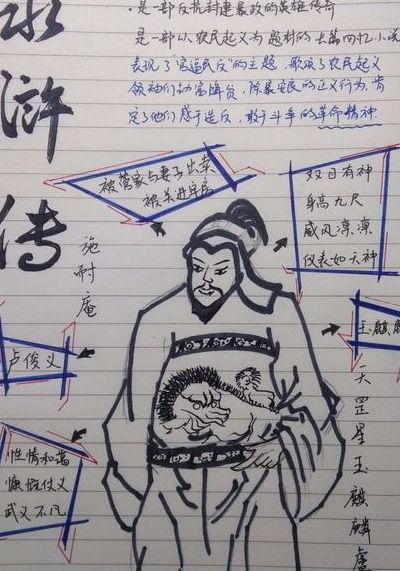 水
浒
传
施耐庵
·是一部反抗封建暴政的英雄传奇
是一部以农民起义为题材的长篇四忆小说
表现了“官逼民反”的主题，歌颂了农民起义
领袖们劫富济贫，除暴安民的正义行为，肯
定了他们感于造反，敢于斗争的革命精神
被管家与妻子出卖
被关进牢房
双目有神
身高九尺
威风凛凛
仪表如天神
玉麒麟
卢俊义
性情和蔼
慷慨仗义
武艺不凡
天罡星玉麒麟卢